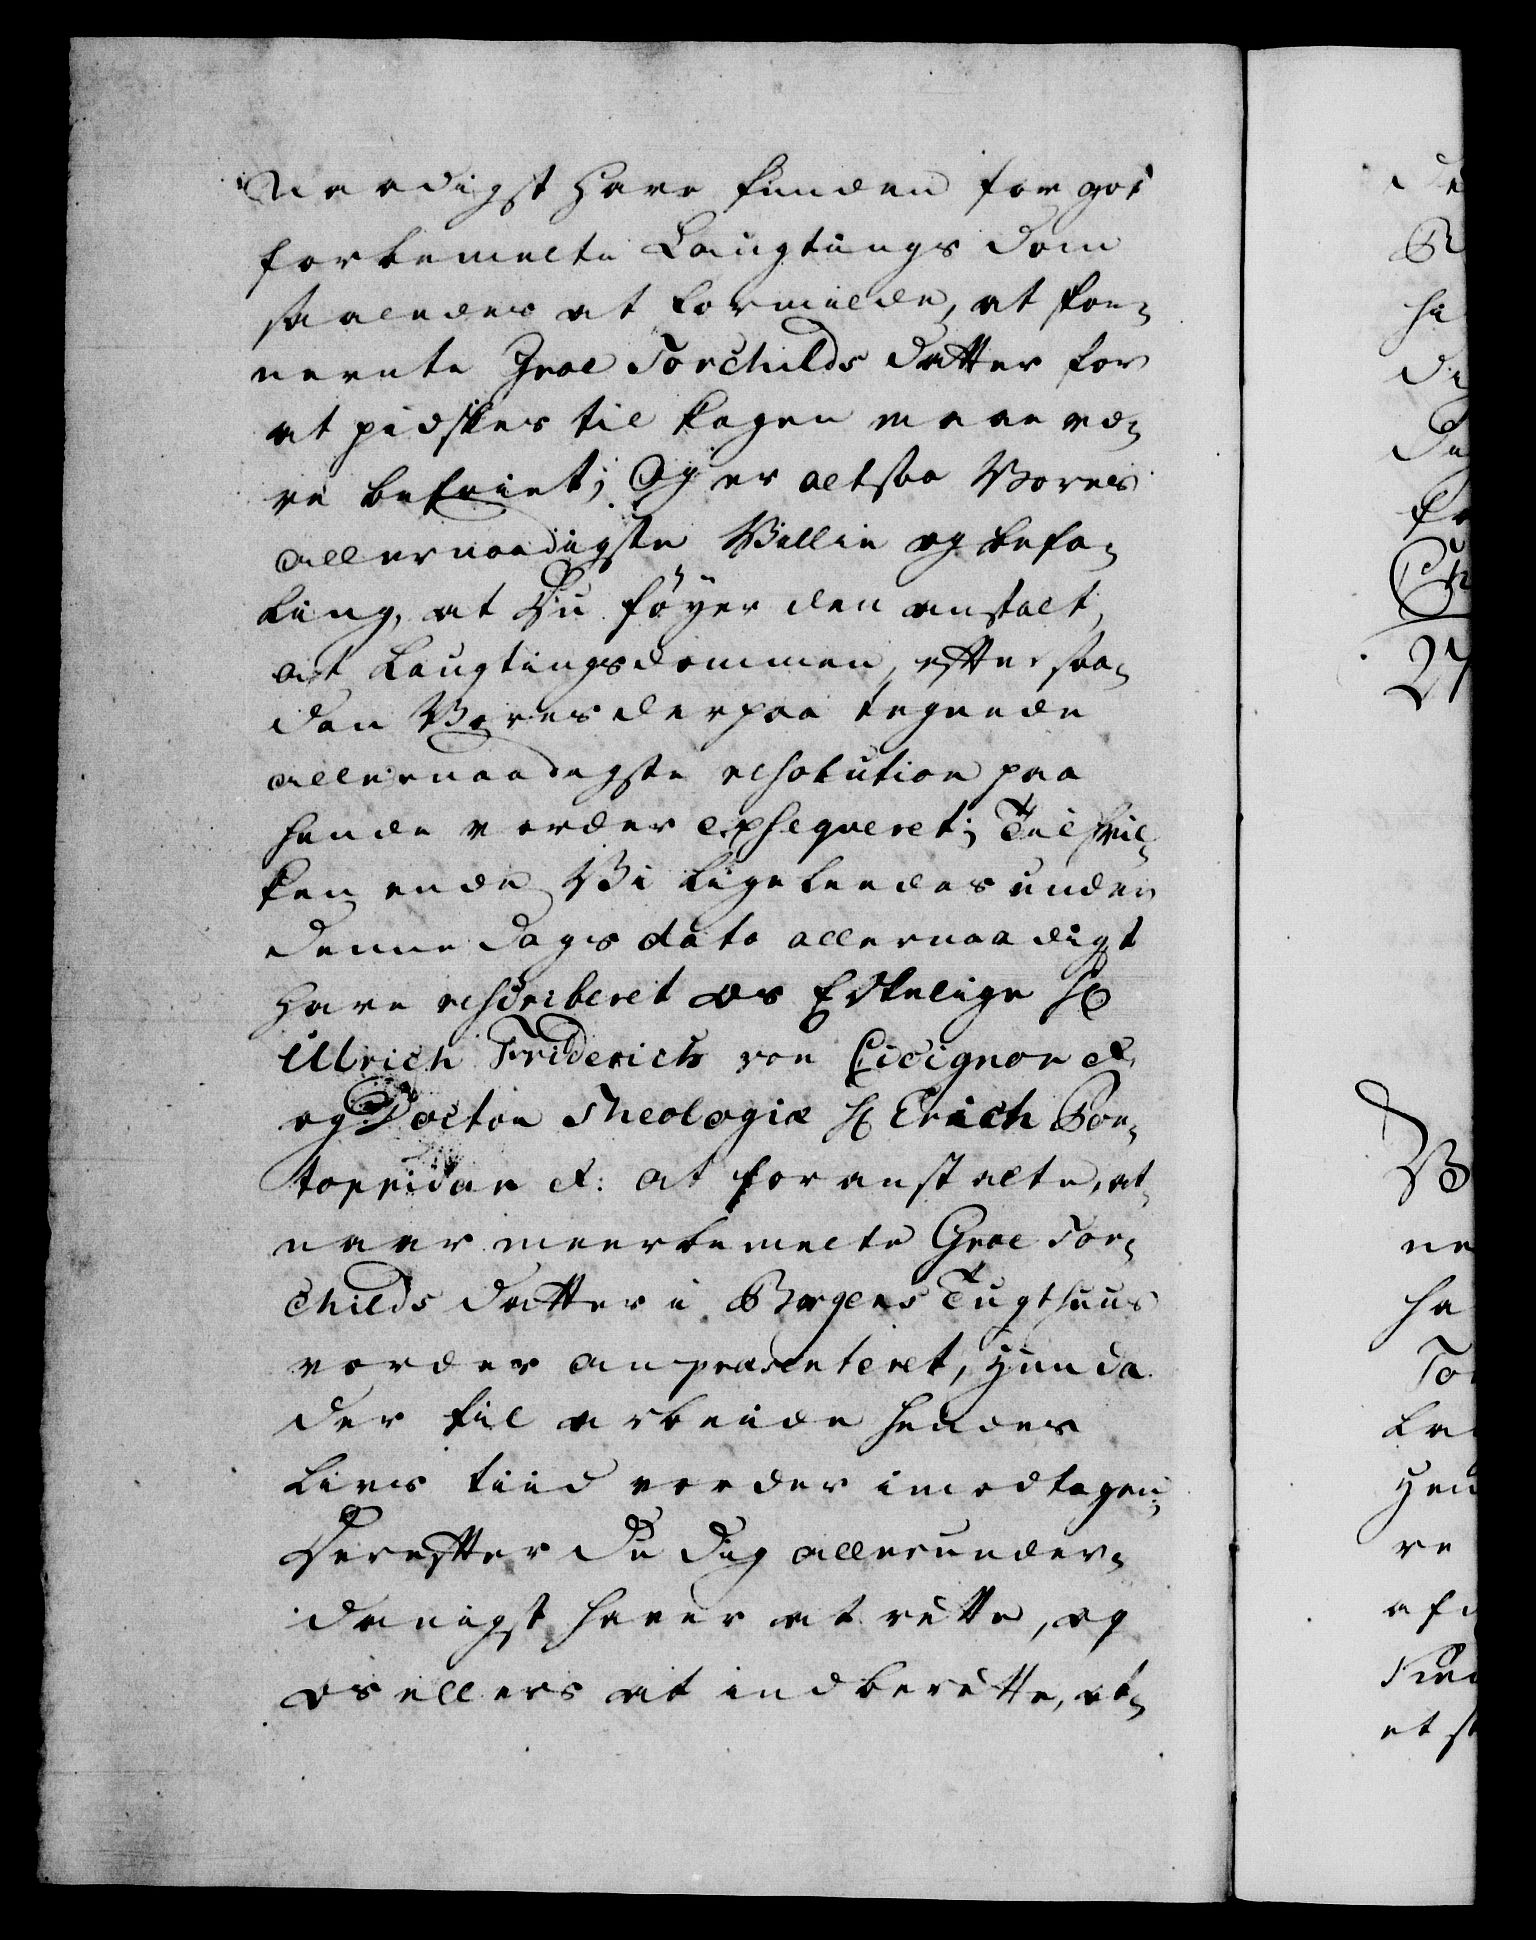 naadigst have funden for got
forbemelte Laugtings Dom
saaledes at formilde, at for¬
nevnte Groe Torchilds Datter for
at pidskes til Kagen maae væ¬
re befriet; Og er altsaa Vores
allernaadigste Villie og befa¬
ling, at Du föyer den anstalt,
at Laugtingsdommen, efter saa¬
dan Vores derpaa tegnede
allernaadigste resolution paa
hende vorder exseqveret; Til hvil¬
ken ende Vi ligeledes under
denne Dags dato allernaadigst
have rescriberet os Elskelige Hr
Ulrich Friderich von Cicignon &
og Doctor Theologiæ Hr Erich Pon¬
toppidan &: at foranstalte, at
naar meerbemelte Groe Tor¬
childs Datter i Bergens Tugthuus
vorder anpræsenteret, Hun da
der til arbeide hendes
Livs tiid vorder imodtagen;
Derefter Du dig allerunder¬
danigst haver at rette, og
os ellers at indberette, at¬
De
R
hi
de
Da
fr
Ch
V
ne
ha
To
La
Hen
re
af
et st